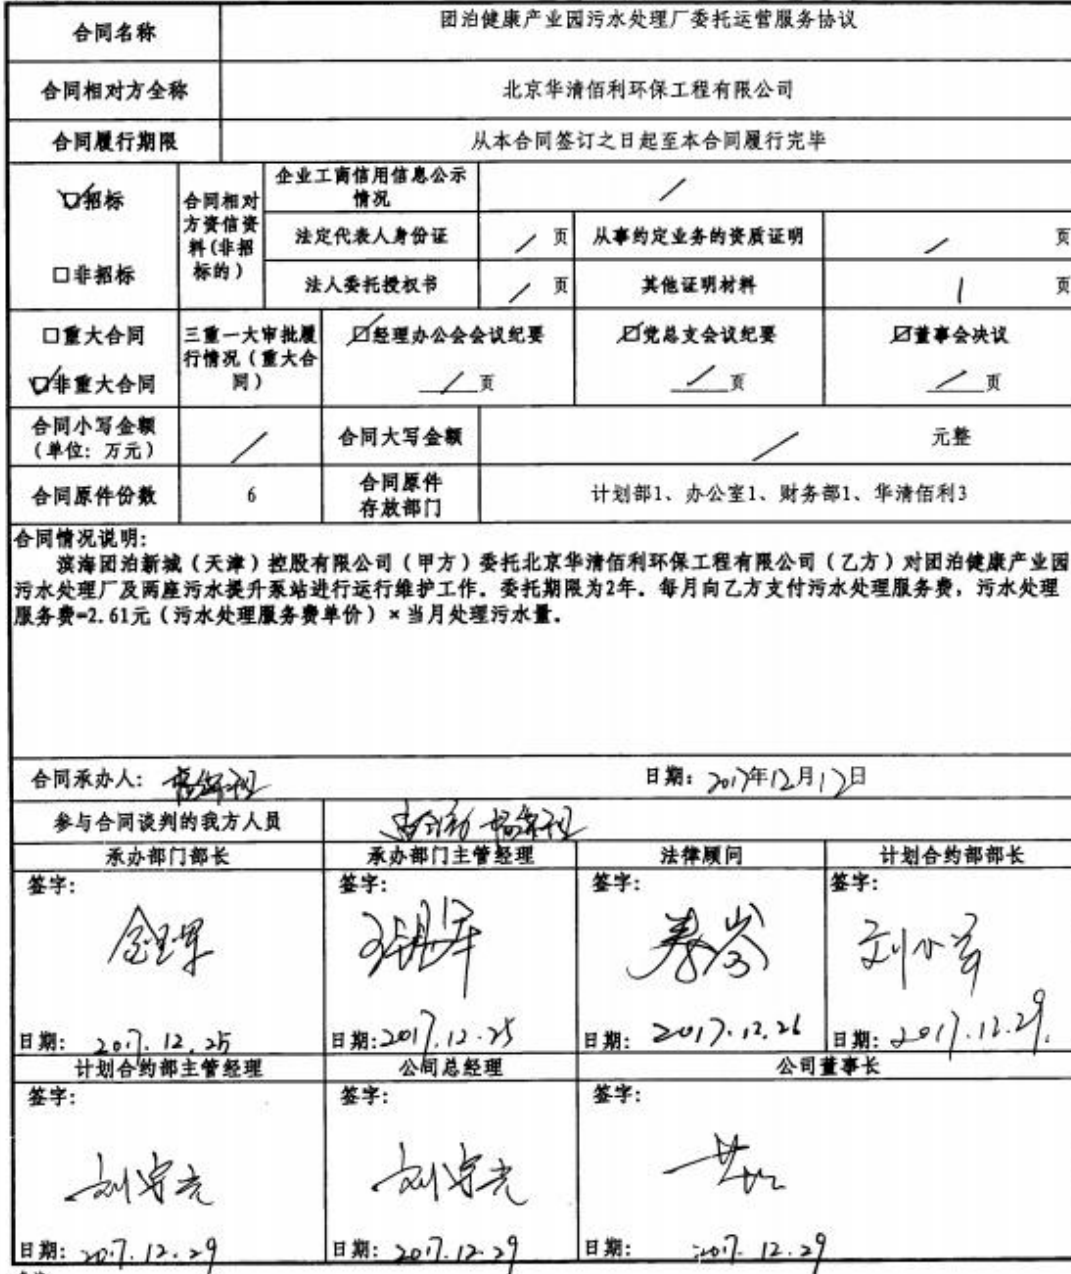 合同名称
团泊健康产业园污水处理厂委托运营服务协议
合同相对方全称
北京华清佰利环保工程有限公司
合同履行期限
从本合同签订之日起至本合同履行完毕
☑招标
□非招标
合同相对
方资信资
料(非招
标的)
企业工商信用信息公示
情况
/
法定代表人身份证
/ 页
从事约定业务的资质证明
/ 页
法人委托授权书
/ 页
其他证明材料
1 页
□重大合同
☑非重大合同
三重一大审批履
行情况(重大合
同)
☑经理办公会会议纪要
/ 页
☑党总支会议纪要
/ 页
☑董事会决议
/ 页
合同小写金额
(单位: 万元)
/
合同大写金额
/ 元整
合同原件份数
6
合同原件
存放部门
计划部1、办公室1、财务部1、华清佰利3
合同情况说明:
滨海团泊新城(天津)控股有限公司(甲方)委托北京华清佰利环保工程有限公司(乙方)对团泊健康产业园
污水处理厂及两座污水提升泵站进行运行维护工作。委托期限为2年。每月向乙方支付污水处理服务费,污水处理
服务费=2.61元(污水处理服务费单价)×当月处理污水量。
合同承办人:
日期: 2017年12月17日
参与合同谈判的我方人员
承办部门部长
承办部门主管经理
法律顾问
计划合约部部长
签字:
签字:
签字:
签字:
日期: 2017.12.25
日期: 2017.12.25
日期: 2017.12.26
日期: 2017.12.29.
计划合约部主管经理
公司总经理
公司董事长
签字:
签字:
签字:
刘守亮
刘守亮
日期: 2017.12.29
日期: 2017.12.29
日期: 2017.12.29